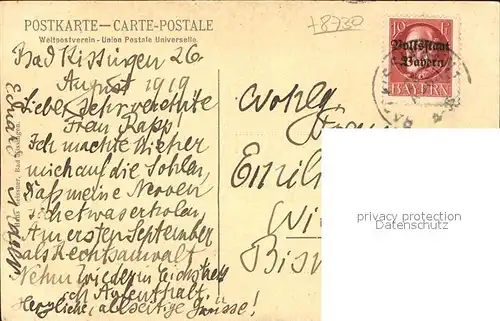 POSTKARTE — CARTE-POSTALE
Weltpostverein - Union Postale Universelle.
+8730
Bad Kissingen 26.
August 1919
Liebe, sehr verehrte
Frau Rapp!
Ich machte hieher
mich auf die Sohlen,
daß meine Nerven
sich etwas erholen.
Am ersten September
als Rechtsanwalt
Nehm wieder in Eichstätt
ich Aufenthalt.
Herzliche, allseitige Grüsse!
Wohlg.
10
Volksstaat
Bayern
BAYERN
privacy protection
Datenschutz
Bad Kissingen.